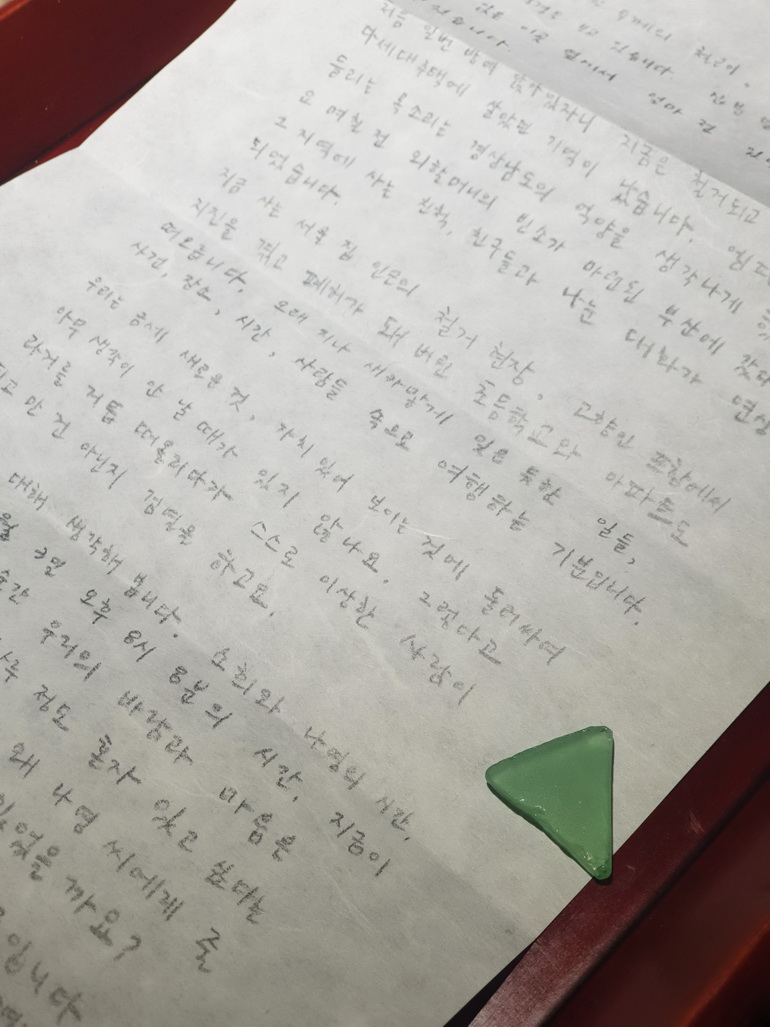 보고 있습니다
다세대주택에 살았던 기억이 났습니다.
들리는 목소리는 경상남도의 억양을 생각나게
요 며칠 전 외할머니의 빈소가 마련된 부산에 갔다
그 지역에 사는 친척, 친구들과 나눈 대화가 연상
되었습니다.
지금 사는 서울 집 인근의 철거 현장, 고향인 포항에서
지진을 겪고 폐허가 돼 버린 초등학교와 아파트도
떠오릅니다. 오래 지나 새카맣게 잊은 듯한 일들,
사건, 장소, 시간, 사람들 속으로 여행하는 기분입니다.
우리는 금세 새로운 것, 가치 있어 보이는 것에 둘러싸여
아무 생각이 안 날 때가 있지 않나요. 그렇다고
과거를 거듭 떠올리다가 스스로 이상한 사람이
안 건 아닌지 검열을 하고요.
대해 생각해 봅니다. 소희와 나영의 시간,
3일 오후 8시 8분의 시간, 지금이
우리의 바람과 마음은
정도 혼자 있고 싶다는
왜 나영 씨에게 준
있었을까요?
입니다